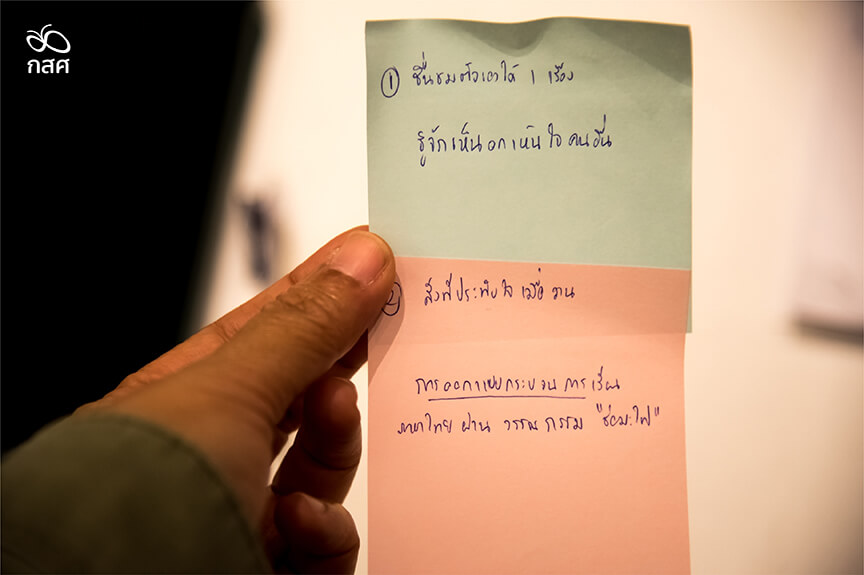 กสศ
① ชื่นชมตัวเองได้ 1 เรื่อง
รู้จักเห็นอกเห็นใจคนอื่น
② สิ่งที่ประทับใจเมื่อวาน
การออกแบบกระบวนการเรียน
ภาษาไทยผ่านวรรณกรรม "ช่อมะไฟ"